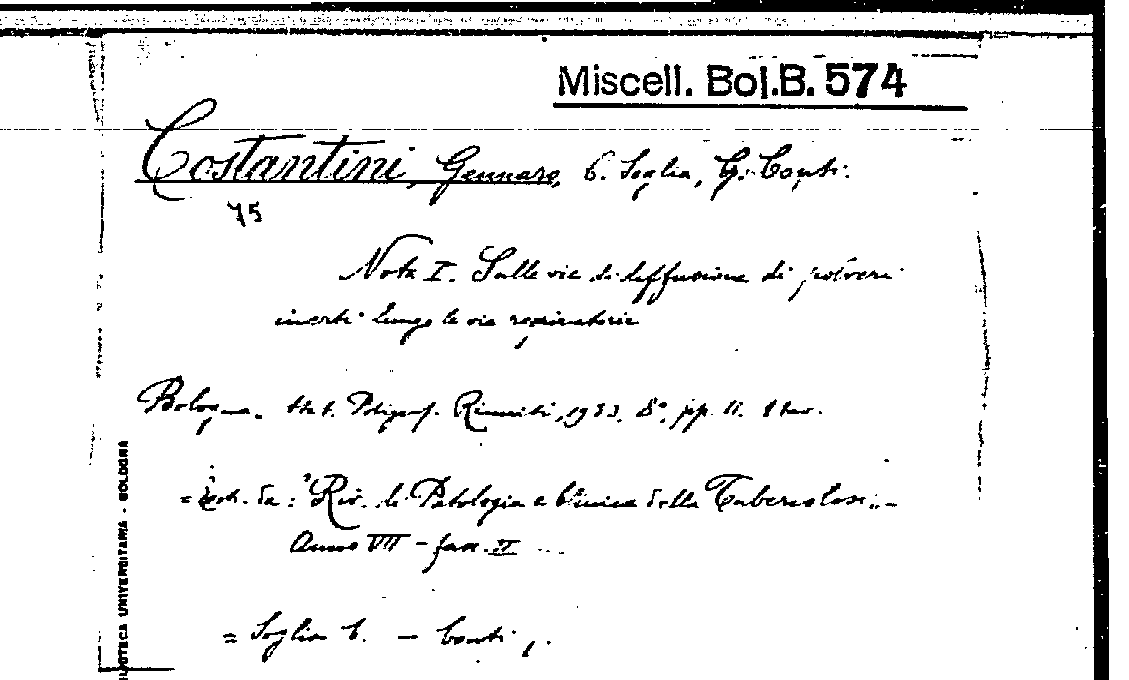 Miscell. Bol.B. 574
Costantini, Gennaro, C. Soglia, G. Conti.
75
Nota I. Sulle vie di diffusione di polveri
inerti lungo le vie respiratorie
Bologna. Stab. Poligraf. Riuniti, 1933. 8°, pp. 11. 1 tav.
= Estr. da: "Riv. di Patologia e Clinica della Tubercolosi" -
Anno VII - fasc. II
= Soglia C. - Conti,
BIBLIOTECA UNIVERSITARIA - BOLOGNA